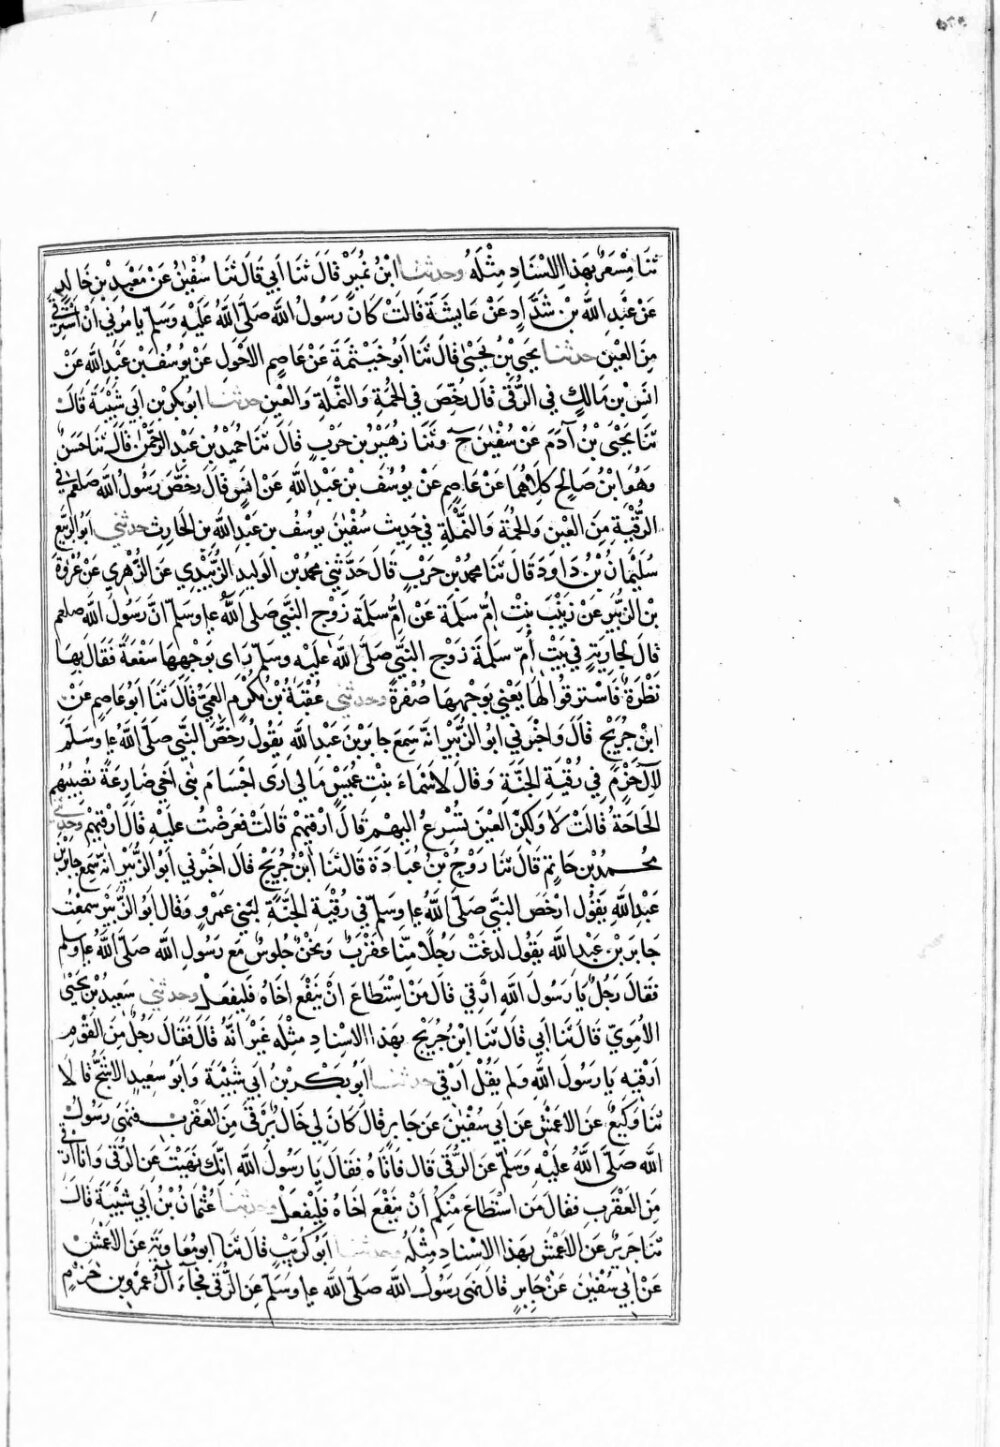 ثَنَا مِسْعَرٌ بِهَذَا الاِسْنَادِ مِثْلَهُ وحدثنا ابْنُ نُمَيْرٍ قَالَ ثَنَا أَبِي قَالَ ثَنَا سُفْيٰنُ عَنْ مَعْبَدِ بْنِ خَالِدٍ
عَنْ عَبْدِ اللهِ بْنِ شَدَّادٍ عَنْ عَايِشَةَ قَالَتْ كَانَ رَسُولُ اللهِ صَلَّى اللهُ عَلَيْهِ وَسَلَّمَ يَامُرُنِي اَنْ اَسْتَرْقِيَ
مِنَ العَيْنِ حدثنا يَحْيَى بْنُ يَحْيَى قَالَ ثَنَا اَبُو خَيْثَمَةَ عَنْ عَاصِمٍ الاَحْوَلِ عَنْ يُوسُفَ بْنِ عَبْدِ اللهِ عَنْ
اَنَسِ بْنِ مَالِكٍ فِي الرُّقَى قَالَ رُخِّصَ فِي الحُمَةِ وَالنَّمْلَةِ وَالعَيْنِ حدثنا ابُو بَكْرِ بْنُ اَبِي شَيْبَةَ قَالَ
ثَنَا يَحْيَى بْنُ آدَمَ عَنْ سُفْيٰنَ ح وَثَنَا زُهَيْرُ بْنُ حَرْبٍ قَالَ ثَنَا حُمَيْدُ بْنُ عَبْدِ الرَّحْمٰنِ قَالَ ثَنَا حَسَنٌ
وَهُوَ ابْنُ صَالِحٍ كِلَاهُمَا عَنْ عَاصِمٍ عَنْ يُوسُفَ بْنِ عَبْدِ اللهِ عَنْ اَنَسٍ قَالَ رَخَّصَ رَسُولُ اللهِ صلعم فِي
الرُّقْيَةِ مِنَ العَيْنِ وَالحُمَةِ وَالنَّمْلَةِ فِي حَدِيثِ سُفْيٰنَ يُوسُفَ بْنِ عَبْدِ اللهِ بْنِ الحَارِثِ حدثني اَبُو الرَّبِيعِ
سُلَيْمَانُ بْنُ دَاوُدَ قَالَ ثَنَا مُحَمَّدُ بْنُ حَرْبٍ قَالَ حَدَّثَنِي مُحَمَّدُ بْنُ الوَلِيدِ الزُّبَيْدِي عَنِ الزُّهْرِي عَنْ عُرْوَةَ
بْنِ الزُّبَيْرِ عَنْ زَيْنَبَ بِنْتِ اُمِّ سَلَمَةَ عَنْ اُمِّ سَلَمَةَ زَوْجِ النَّبِيِّ صَلَّى اللهُ عليه وسلم اَنَّ رَسُولَ اللهِ صلعم
قَالَ لِجَارِيَةٍ فِي بَيْتِ اُمِّ سَلَمَةَ زَوْجِ النَّبِيِّ صَلَّى اللهُ عَلَيْهِ وَسَلَّمَ رَاى بِوَجْهِهَا سَفْعَةً فَقَالَ بِهَا
نَظْرَةٌ فَاسْتَرْقُوا لَهَا يَعْنِي بِوَجْهِهَا صُفْرَةً وحدثني عُقْبَةُ بْنُ مُكْرَمٍ العَمِّيُّ قَالَ ثَنَا اَبُو عَاصِمٍ عَنْ
ابْنِ جُرَيْجٍ قَالَ وَاَخْبَرَنِي اَبُو الزُّبَيْرِ اَنَّهُ سَمِعَ جَابِرَ بْنَ عَبْدِ اللهِ يَقُولُ رَخَّصَ النَّبِيُّ صَلَّى اللهُ عليه وَسَلَّمَ
لآلِ حَزْمٍ فِي رُقْيَةِ الحَيَّةِ وَقَالَ لاَسْمَاءَ بِنْتِ عُمَيْسٍ مَالِي اَرَى اَجْسَامَ بَنِي اَخِي ضَارِعَةً تُصِيبُهُم
الحَاجَةُ قَالَتْ لَا وَلٰكِنِ العَيْنُ تُسْرِعُ اِلَيْهِمْ قَالَ ارْقِيهِمْ قَالَتْ فَعَرَضْتُ عَلَيْهِ قَالَ ارْقِيهِمْ وحدثني
مُحَمَّدُ بْنُ حَاتِمٍ قَالَ ثَنَا رَوْحُ بْنُ عُبَادَةَ قَالَ ثَنَا ابْنُ جُرَيْجٍ قَالَ اَخْبَرَنِي اَبُو الزُّبَيْرِ اَنَّهُ سَمِعَ جَابِرَ بْنَ
عَبْدِ اللهِ يَقُولُ اَرْخَصَ النَّبِيُّ صَلَّى اللهُ عليه وسلم فِي رُقْيَةِ الحَيَّةِ لِبَنِي عَمْرٍو وَقَالَ اَبُو الزُّبَيْرِ سَمِعْتُ
جَابِرَ بْنَ عَبْدِ اللهِ يَقُولُ لَدَغَتْ رَجُلًا مِنَّا عَقْرَبٌ وَنَحْنُ جُلُوسٌ مَعَ رَسُولِ اللهِ صَلَّى اللهُ عليه وسلم
فَقَالَ رَجُلٌ يَا رَسُولَ اللهِ اَرْقِي قَالَ مَنِ اسْتَطَاعَ اَنْ يَنْفَعَ اَخَاهُ فَلْيَفْعَلْ وحدثني سَعِيدُ بْنُ يَحْيَى
الاُمَوِيُّ قَالَ ثَنَا اَبِي قَالَ ثَنَا ابْنُ جُرَيْجٍ بِهَذَا الاِسْنَادِ مِثْلَهُ غَيْرَ اَنَّهُ قَالَ فَقَالَ رَجُلٌ مِنَ القَوْمِ
اَرْقِيهِ يَا رَسُولَ اللهِ وَلَمْ يَقُلْ اَرْقِي حدثنا اَبُو بَكْرِ بْنُ اَبِي شَيْبَةَ وَاَبُو سَعِيدٍ الاَشَجُّ قَالَا
ثَنَا وَكِيعٌ عَنِ الاَعْمَشِ عَنْ اَبِي سُفْيٰنَ عَنْ جَابِرٍ قَالَ كَانَ لِي خَالٌ يَرْقِي مِنَ العَقْرَبِ فَنَهَى رَسُولُ
اللهِ صَلَّى اللهُ عَلَيْهِ وَسَلَّمَ عَنِ الرُّقَى قَالَ فَاَتَاهُ فَقَالَ يَا رَسُولَ اللهِ اِنَّكَ نَهَيْتَ عَنِ الرُّقَى وَانَا اَرْقِي
مِنَ العَقْرَبِ فَقَالَ مَنِ اسْتَطَاعَ مِنْكُمْ اَنْ يَنْفَعَ اَخَاهُ فَلْيَفْعَلْ وحدثنا عُثْمَانُ بْنُ اَبِي شَيْبَةَ قَالَ
ثَنَا جَرِيرٌ عَنِ الاَعْمَشِ بِهَذَا الاِسْنَادِ مِثْلَهُ وحدثنا اَبُو كُرَيْبٍ قَالَ ثَنَا اَبُو مُعَاوِيَةَ عَنِ الاَعْمَشِ
عَنْ اَبِي سُفْيٰنَ عَنْ جَابِرٍ قَالَ نَهَى رَسُولُ اللهِ صَلَّى اللهُ عليه وَسَلَّمَ عَنِ الرُّقَى فَجَآءَ آلُ عَمْرِو بْنِ حَزْمٍ